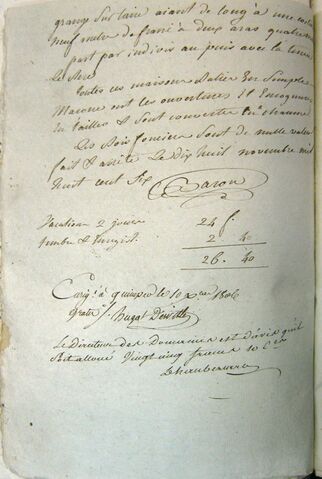 grange Sur l'aire aiant de long à une
neuf metre de franc à deux aras quatre
part par indivis au puis avec la tenue
Toutes ces maisons Batie En Simple
Maçone est les ouvertures Et Encognure
En tailles & Sont couvertes En chaume
Les Bois fonciers Sont de nulle valeur
fait & arreté Le Dix huit novembre mil
huit cent Six
Baron
Vacation 2 jours 24 f.
timbre & Enregist. 2 40
26. 40
Enrg.é à quimper le 10 Xbre 1806
gratis
Le Directeur des Domaines est d'avis qu'il
Soit alloué Vingt cinq francs 10 C.es